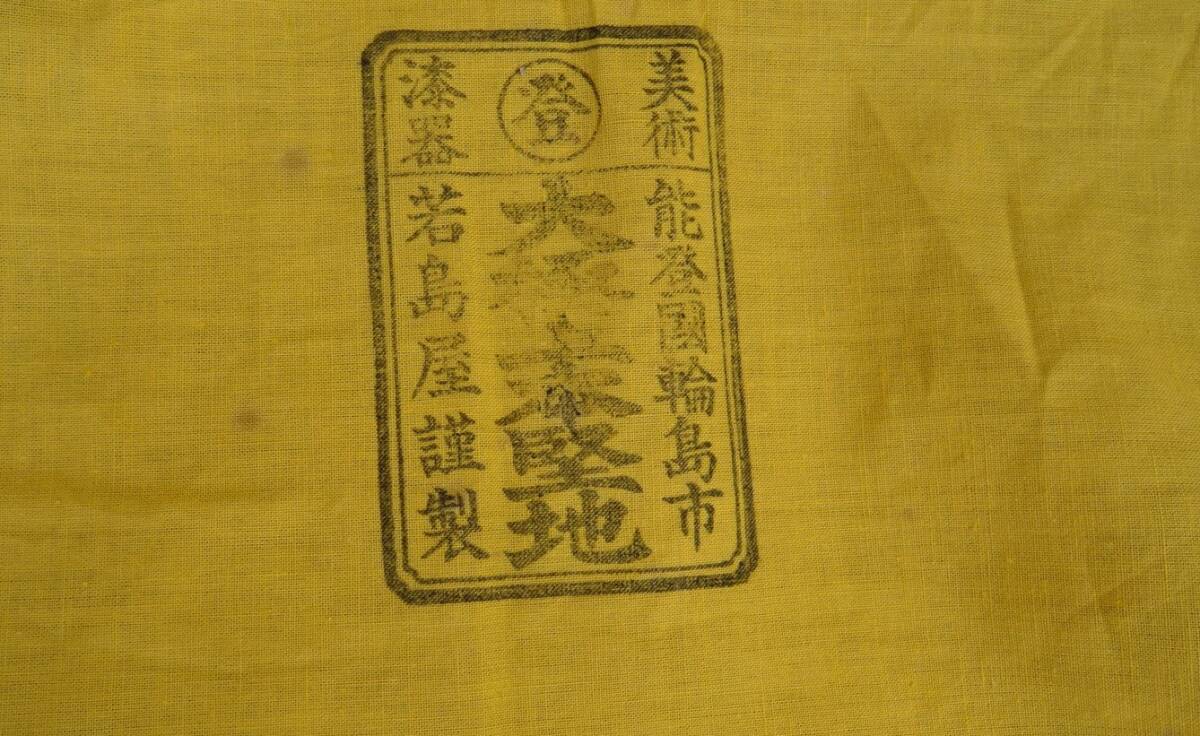 美術
澄
漆器
能登國輪島市
大 堅地
若島屋謹製